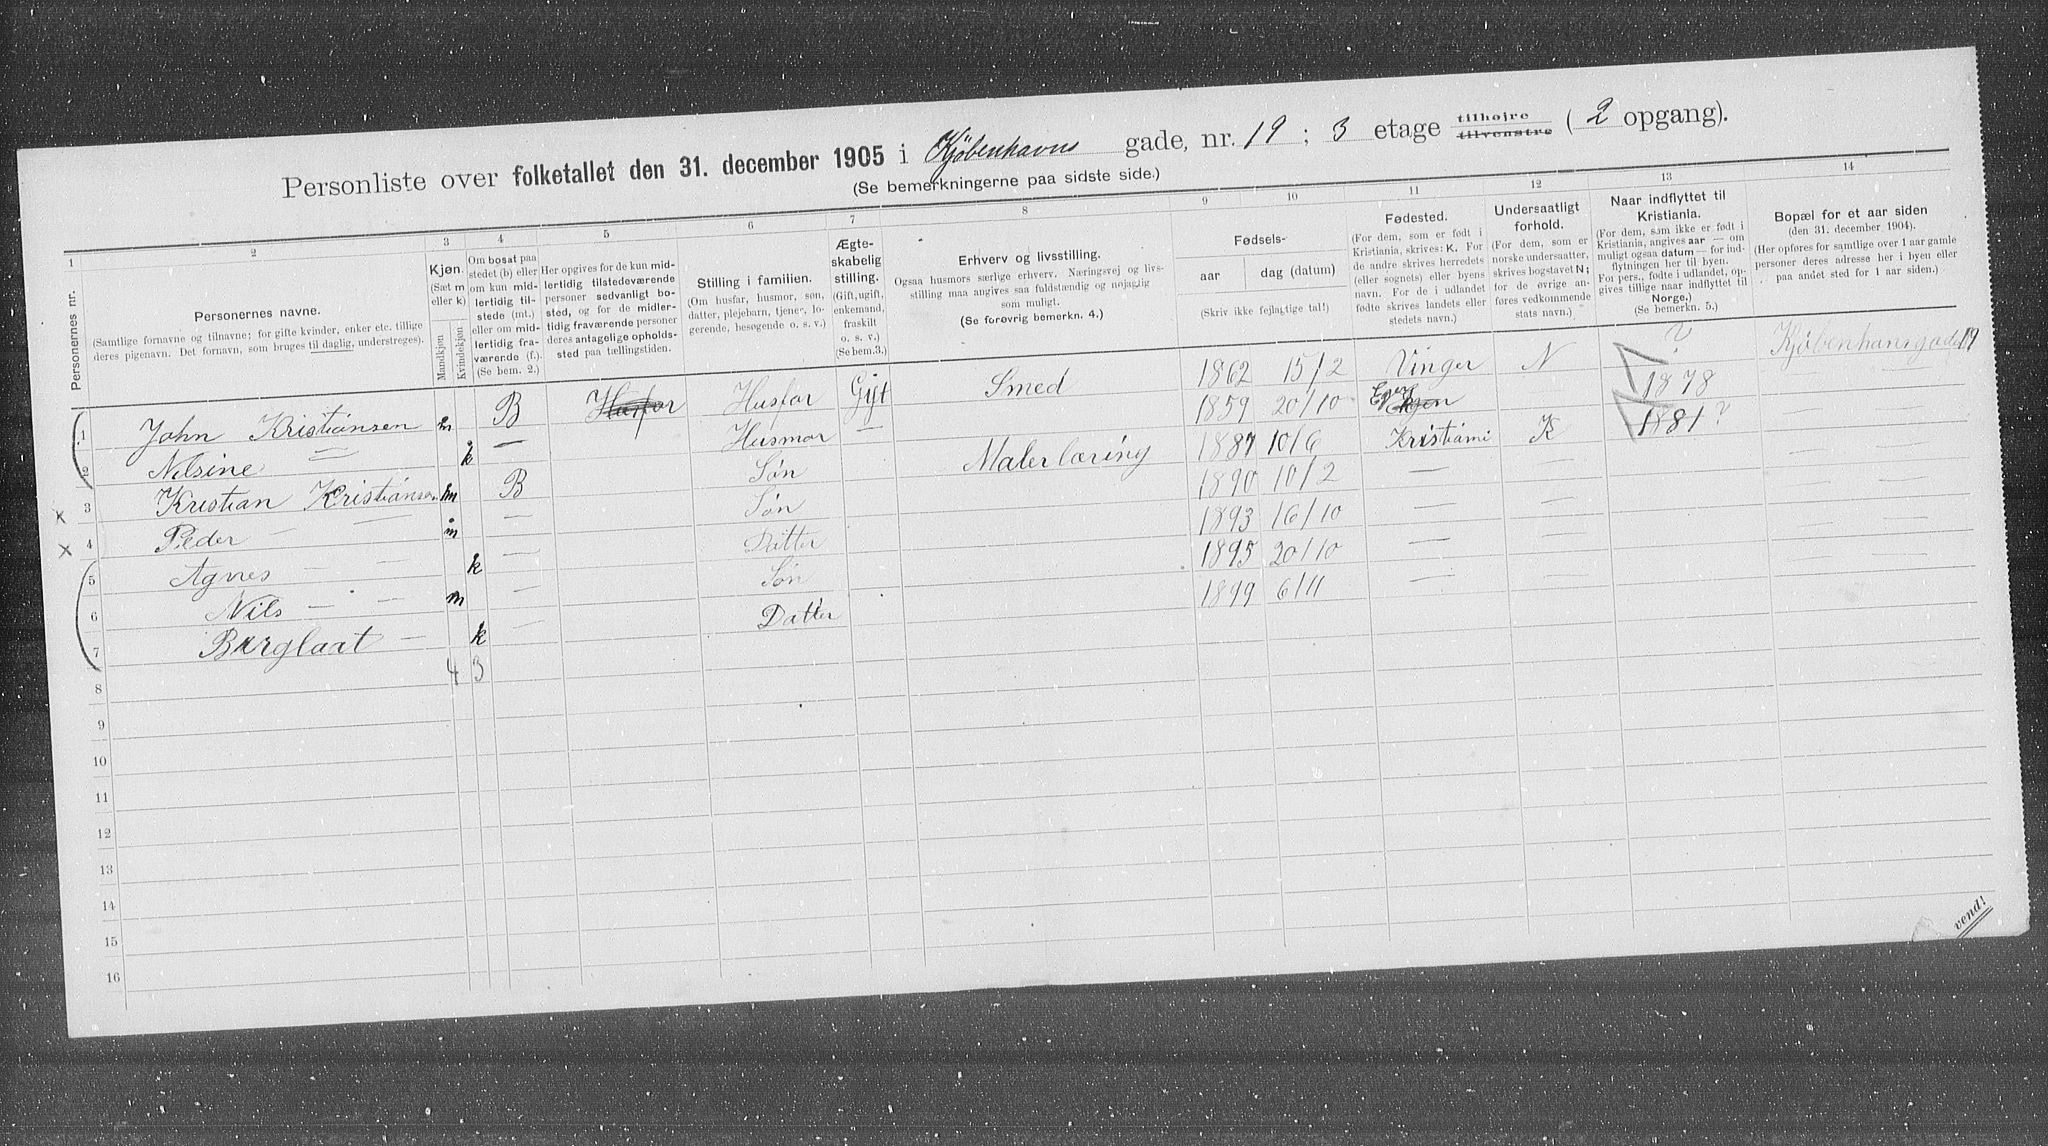 Personliste over folketallet den 31. december 1905 i Kjøbenhavns gade, nr. 19 ; 3 etage tilhøjre tilvenstre ( 2 opgang).
(Se bemerkningerne paa sidste side.)
1 2 3 4 5 6 7 8 9 10 11 12 13 14
Personernes nr.
Personernes navne.
(Samtlige fornavne og tilnavne; for gifte kvinder, enker etc. tillige
deres pigenavn. Det fornavn, som bruges til daglig, understreges).
Kjøn.
(Sæt m
eller k)
Mandkjøn
Kvindekjøn.
Om bosat paa
stedet (b) eller
om kun mid-
lertidig til-
stede (mt.)
eller om mid-
lertidig fra-
værende (f.).
(Se bem. 2.)
Her opgives for de kun mid-
lertidig tilstedeværende
personer sedvanligt bo-
sted, og for de midler-
tidig fraværende personer
deres antagelige opholds-
sted paa tællingstiden.
Stilling i familien.
(Om husfar, husmor, søn,
datter, plejebarn, tjener, lo-
gerende, besøgende o. s. v.)
Ægte-
skabelig
stilling.
(Gift, ugift,
enkemand,
fraskilt
o. s. v.)
(Se bem.3.)
Erhverv og livsstilling.
Ogsaa husmors særlige erhverv. Næringsvej og livs-
stilling maa angives saa fuldstændig og nøjagtig
som muligt.
(Se forøvrig bemerkn. 4.)
Fødsels-
aar dag (datum)
(Skriv ikke fejlagtige tal!)
Fødested.
(For dem, som er født i
Kristiania, skrives: K. For
de andre skrives herredets
(eller sognets) eller byens
navn. For de i udlandet
fødte skrives landets eller
stedets navn.)
Undersaatligt
forhold.
(For dem, som er
norske undersaatter,
skrives bogstavet N;
for de øvrige an-
føres vedkommende
stats navn.)
Naar indflyttet til
Kristiania.
(For dem, som ikke er født i
Kristiania, angives aar — om
muligt ogsaa datum — for ind-
flytningen her til byen.
For pers., fødte i udlandet, op-
gives tillige naar indflyttet til
Norge.)
(Se bemerkn. 5.)
Bopæl for et aar siden
(den 31. december 1904).
(Her opføres for samtlige over 1 aar gamle
personer deres adresse her i byen eller
paa andet sted for 1 aar siden.)
1 John Kristiansen m B Husfar Husfar Gift Smed 1862 15/2 Vinger N ? 1878 Kjøbenhavnsgade 19
2 Nilsine — k — Husmor — 1859 20/10 1881 ? —
x 3 Kristian Kristiansen m B Søn Malerlæring 1887 10/6 Kristiania K —
x 4 Peder — — m — Søn 1890 10/2 — — —
5 Agnes — — k — Datter 1893 16/10 — — —
6 Nils — — m — Søn 1895 20/10 — — —
7 Borglaat — k — Datter 1899 6/11 — — —
8 4 3
9
10
11
12
13
14
15
16
vend!